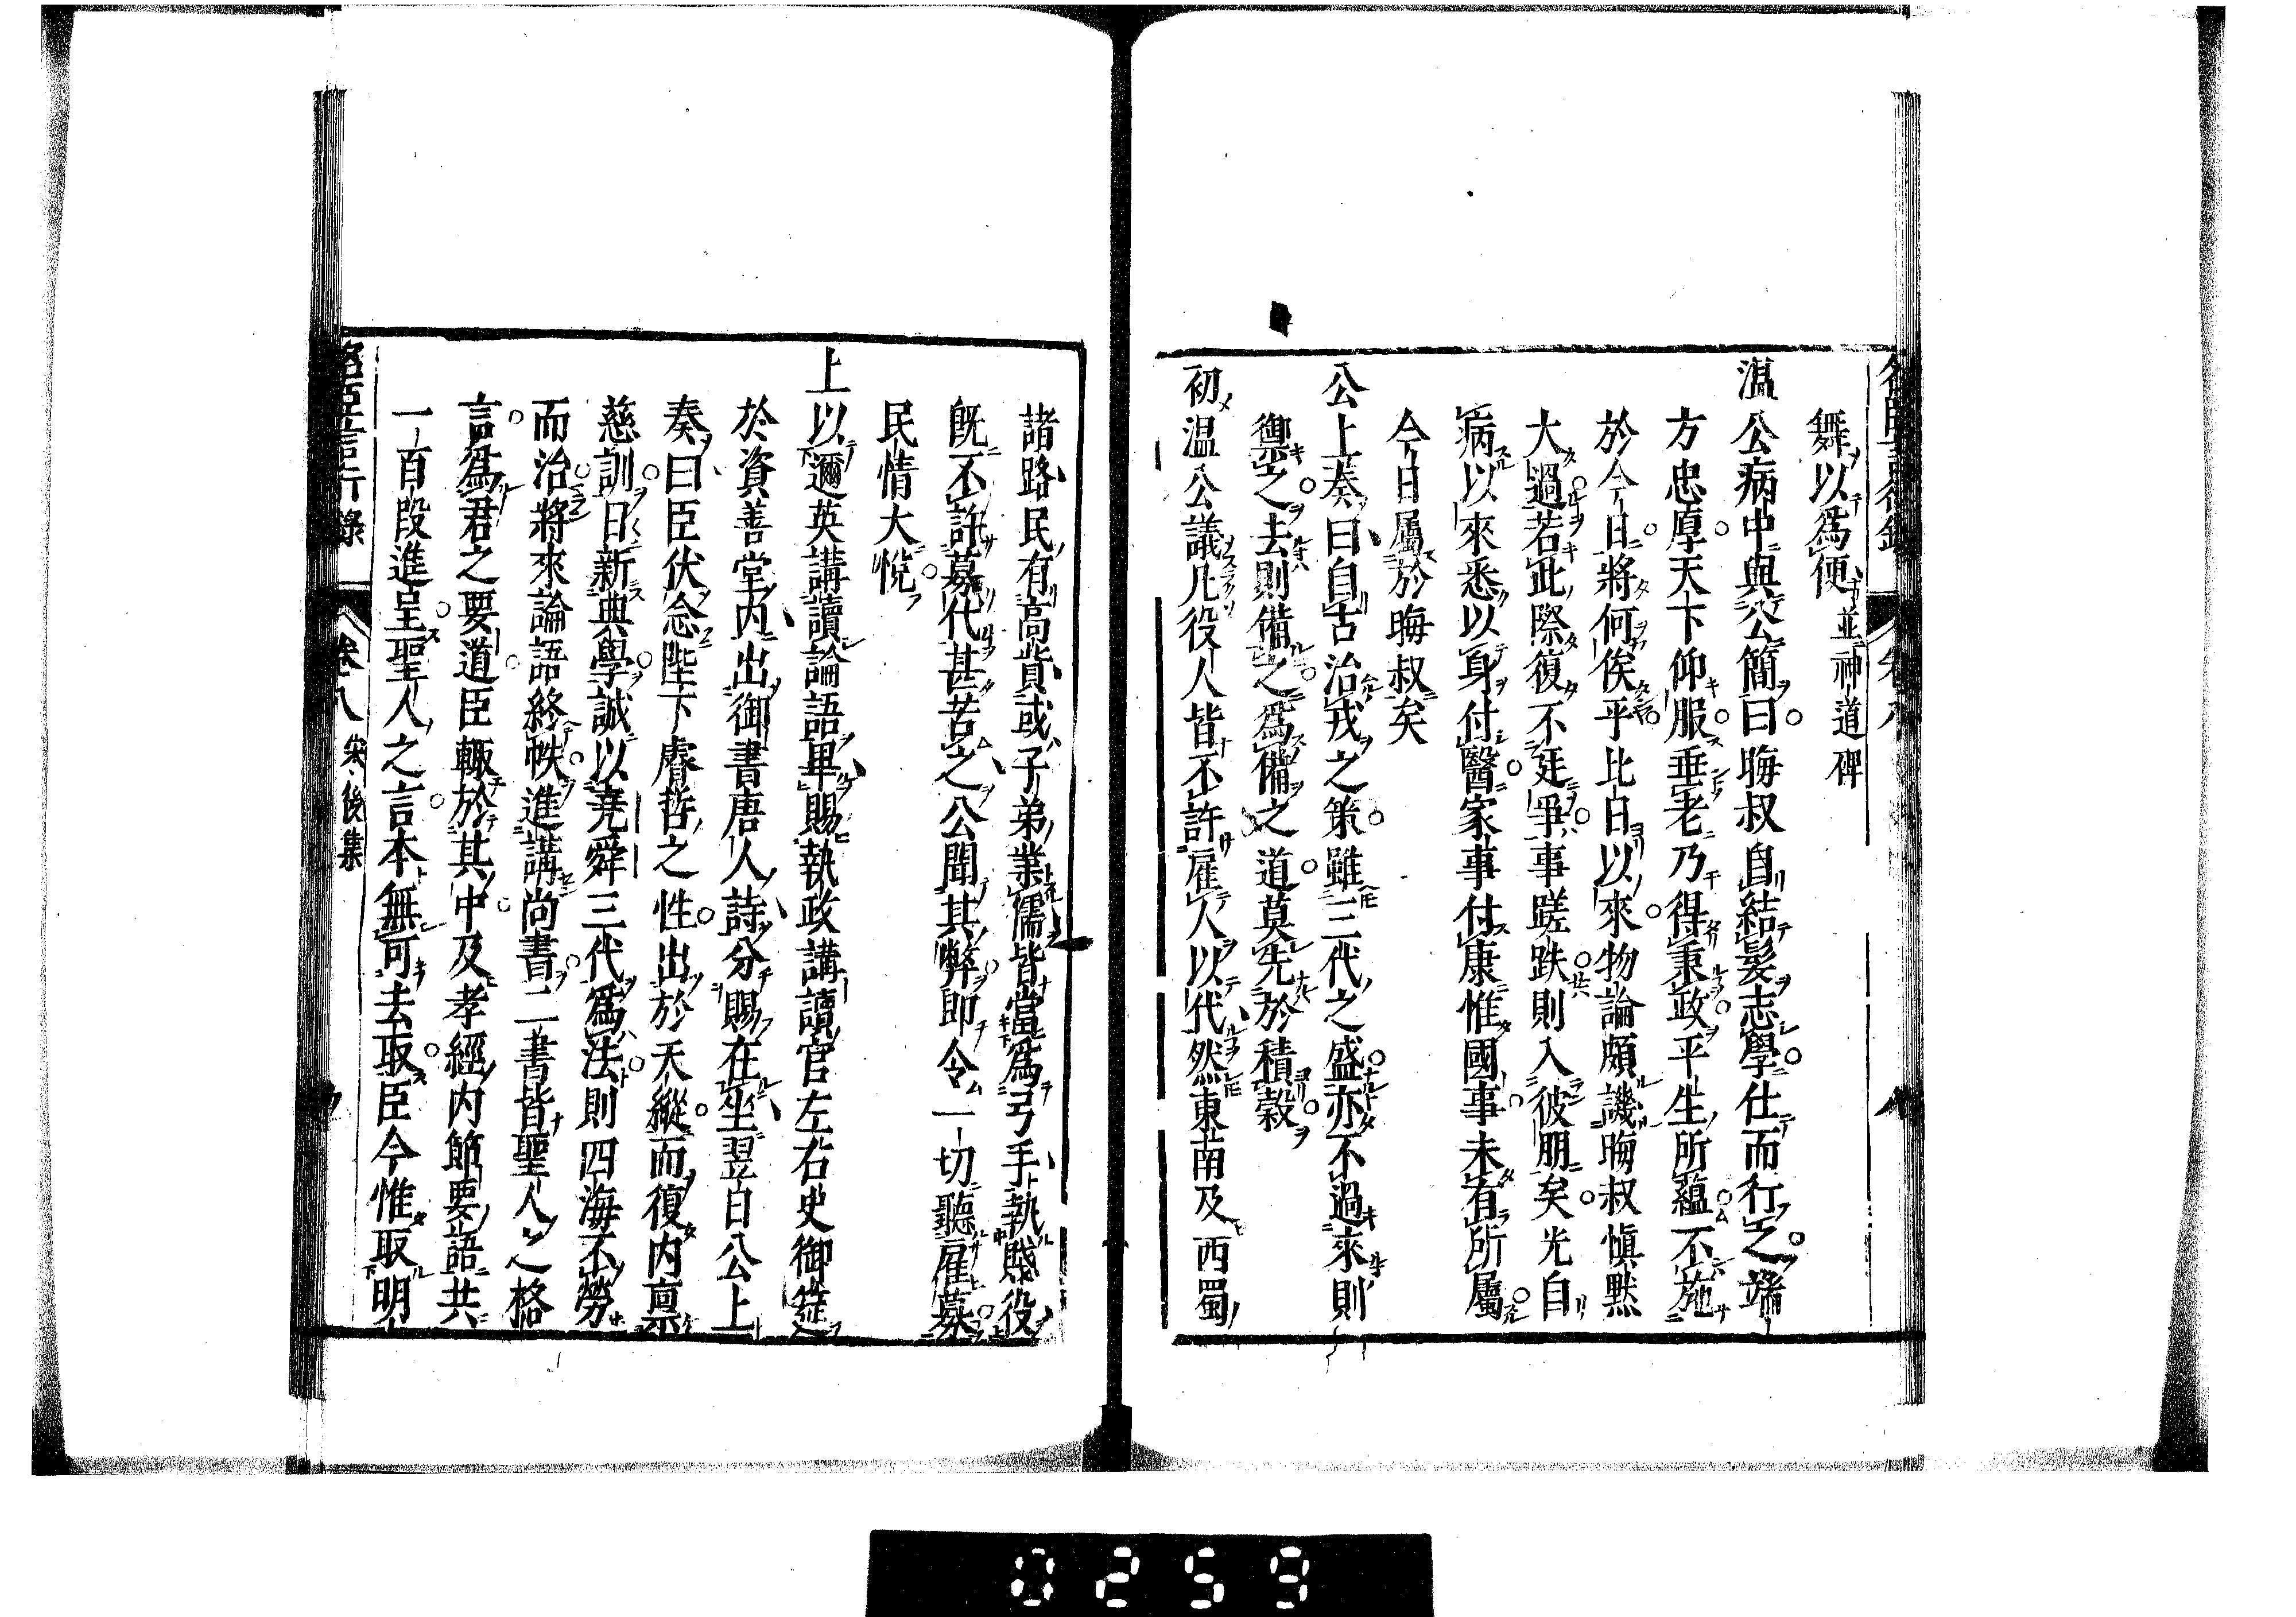 名臣言行錄 卷八 八
舞以為便並神道碑
溫公病中與公簡曰晦叔自結髮志學仕而行之端
方忠厚天下仰服垂老乃得秉政平生所蘊不施
於今日將何俟乎比日以來物論頗譏晦叔慎默
大過若此際復不廷爭事蹉跌則入彼朋矣光自
病以來悉以身付醫家事付康惟國事未有所屬
今日屬於晦叔矣
公上奏曰自古治戎之策雖三代之盛亦不過來則
禦之去則備之為備之道莫先於積穀
初溫公議凡役人皆不許雇人以代然東南及西蜀
諸路民有高貲或子弟業儒皆當為弓手執賤役
既不許募代甚苦之公聞其弊即令一切聽雇募
民情大悅
上以邇英講讀論語畢賜執政講讀官左右史御筵
於資善堂內出御書唐人詩分賜在坐翌日公上
奏曰臣伏念陛下睿哲之性出於天縱而復內稟
慈訓日新典學誠以堯舜三代為法則四海不勞
而治將來論語終帙進講尚書二書皆聖人之格
言為君之要道臣輒於其中及孝經內節要語共
一百段進呈聖人之言本無可去取臣今惟取明
名臣言行錄 卷八 宋後集